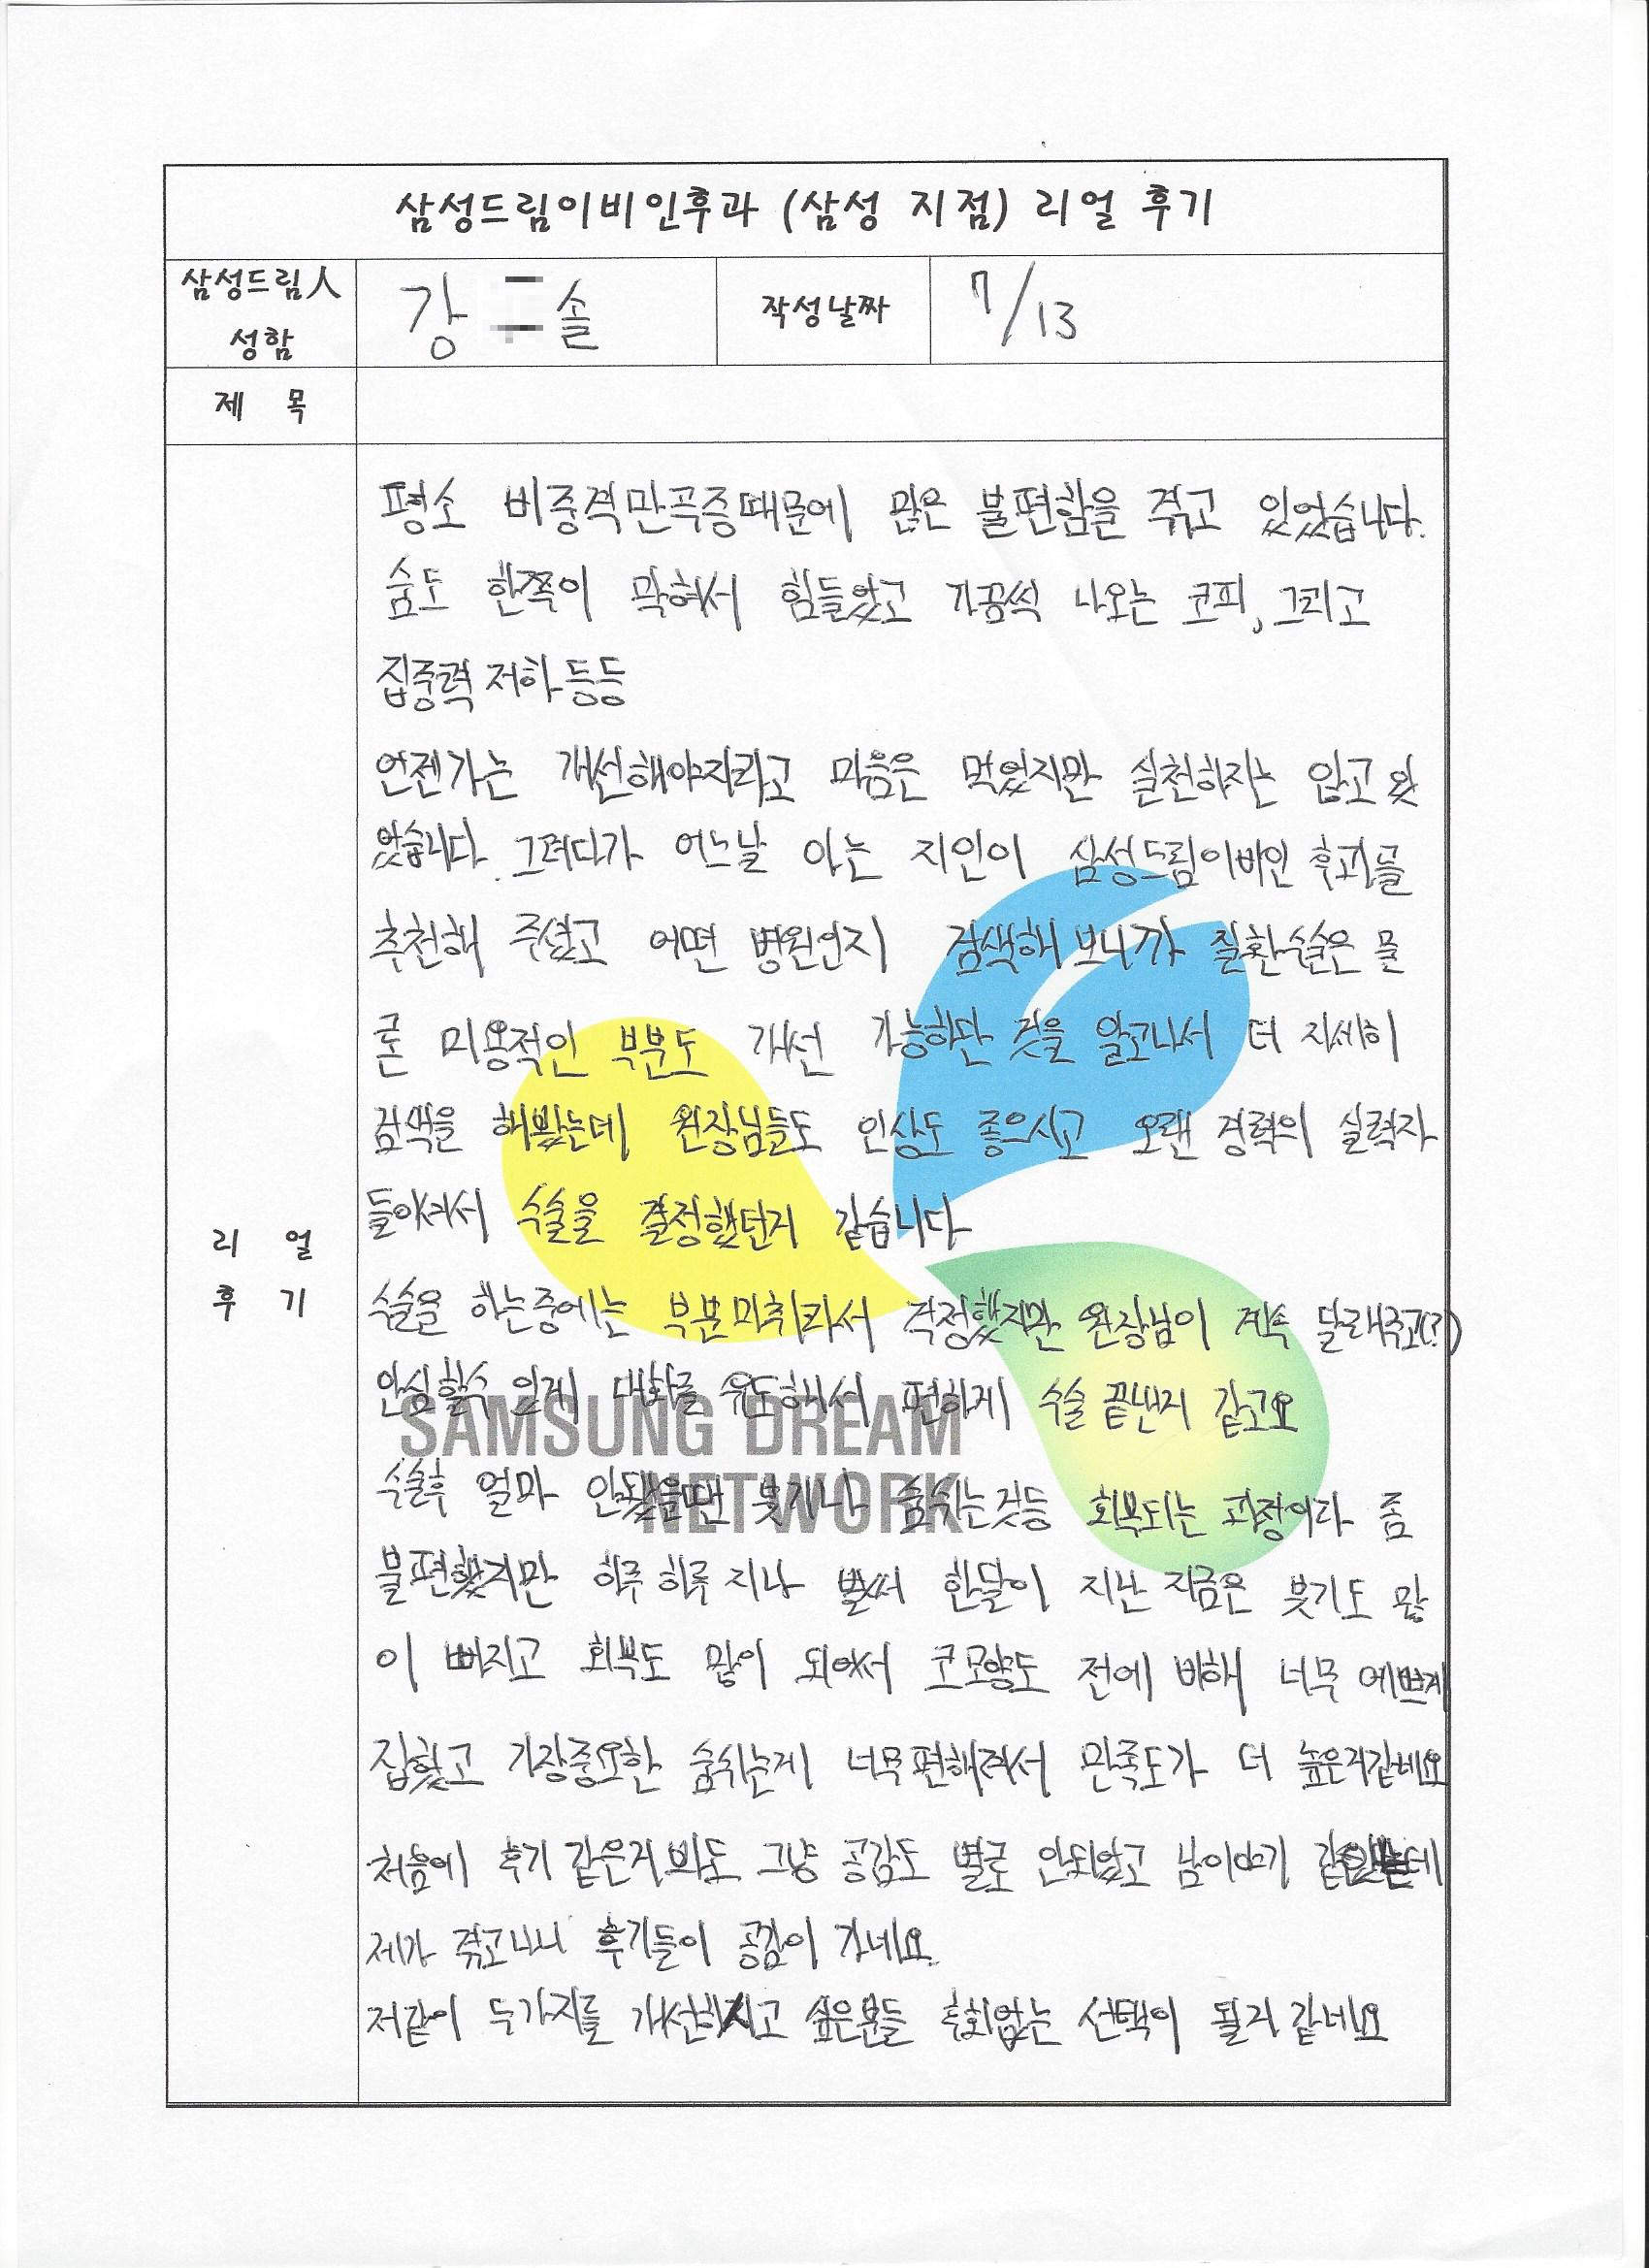 삼성드림이비인후과 (삼성 지점) 리얼 후기
삼성드림人
성함
강 솔
작성날짜
7/13
제 목
리 얼
후 기
평소 비중격만곡증때문에 많은 불편함을 겪고 있었습니다.
숨도 한쪽이 막혀서 힘들었고 가끔씩 나오는 코피, 그리고
집중력 저하 등등
언젠가는 개선해야지라고 마음은 먹었지만 실천하지는 않고 있
었습니다. 그러다가 어느날 아는 지인이 삼성드림이비인 후과를
추천해 주셨고 어떤 병원인지 검색해 보니까 질환수술은 물
론 미용적인 부분도 개선 가능하단 것을 알고나서 더 자세히
검색을 해봤는데 원장님들도 인상도 좋으시고 오랜 경력의 실력자
들이셔서 수술을 결정했던거 같습니다
수술을 하는중에는 부분마취라서 걱정했지만 원장님이 계속 달래주고(?)
안심할수 있게 대화를 유도해서 편하게 수술 끝낸거 같고요
수술후 얼마 안됐을땐 붓기나 숨쉬는것등 회복되는 과정이라 좀
불편했지만 하루 하루 지나 벌써 한달이 지난 지금은 붓기도 많
이 빠지고 회복도 많이 되어서 코모양도 전에 비해 너무 예쁘게
잡혔고 가장중요한 숨쉬는게 너무편해져서 만족도가 더 높은거같네요
처음에 후기 같은거 봐도 그냥 공감도 별로 안되었고 남이야기 같았는데
제가 겪고나니 후기들이 공감이 가네요.
저같이 두가지를 개선하시고 싶은분들 후회없는 선택이 될거 같네요
SAMSUNG DREAM
NETWORK